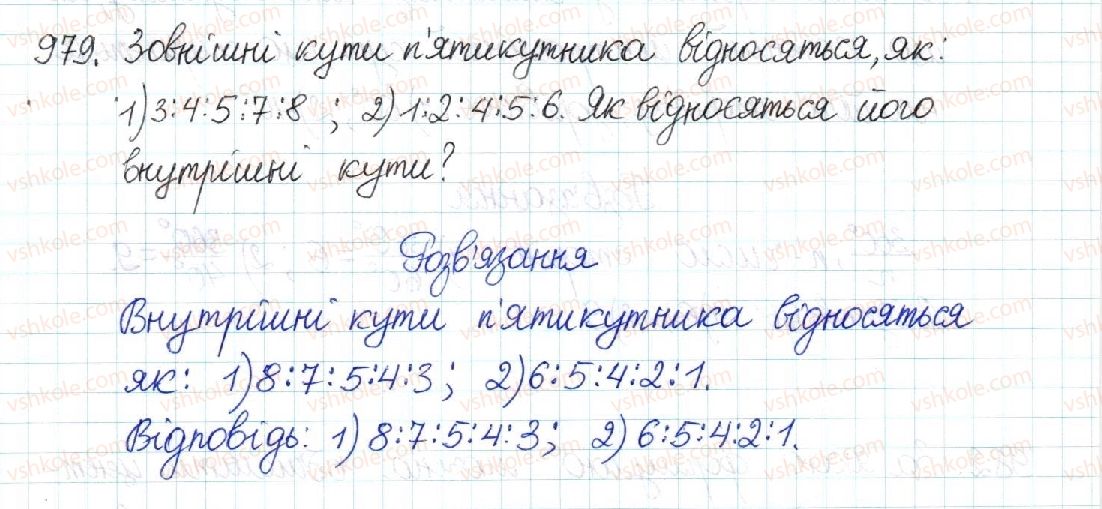 979. Зовнішні кути п'ятикутника відносяться, як:
1) 3:4:5:7:8; 2) 1:2:4:5:6. Як відносяться його
внутрішні кути?
Розв'язання
Внутрішні кути п'ятикутника відносяться
як: 1) 8:7:5:4:3; 2) 6:5:4:2:1.
Відповідь: 1) 8:7:5:4:3; 2) 6:5:4:2:1.